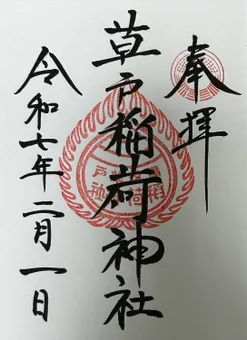 奉拝
草戸稲荷神社
令和七年二月一日